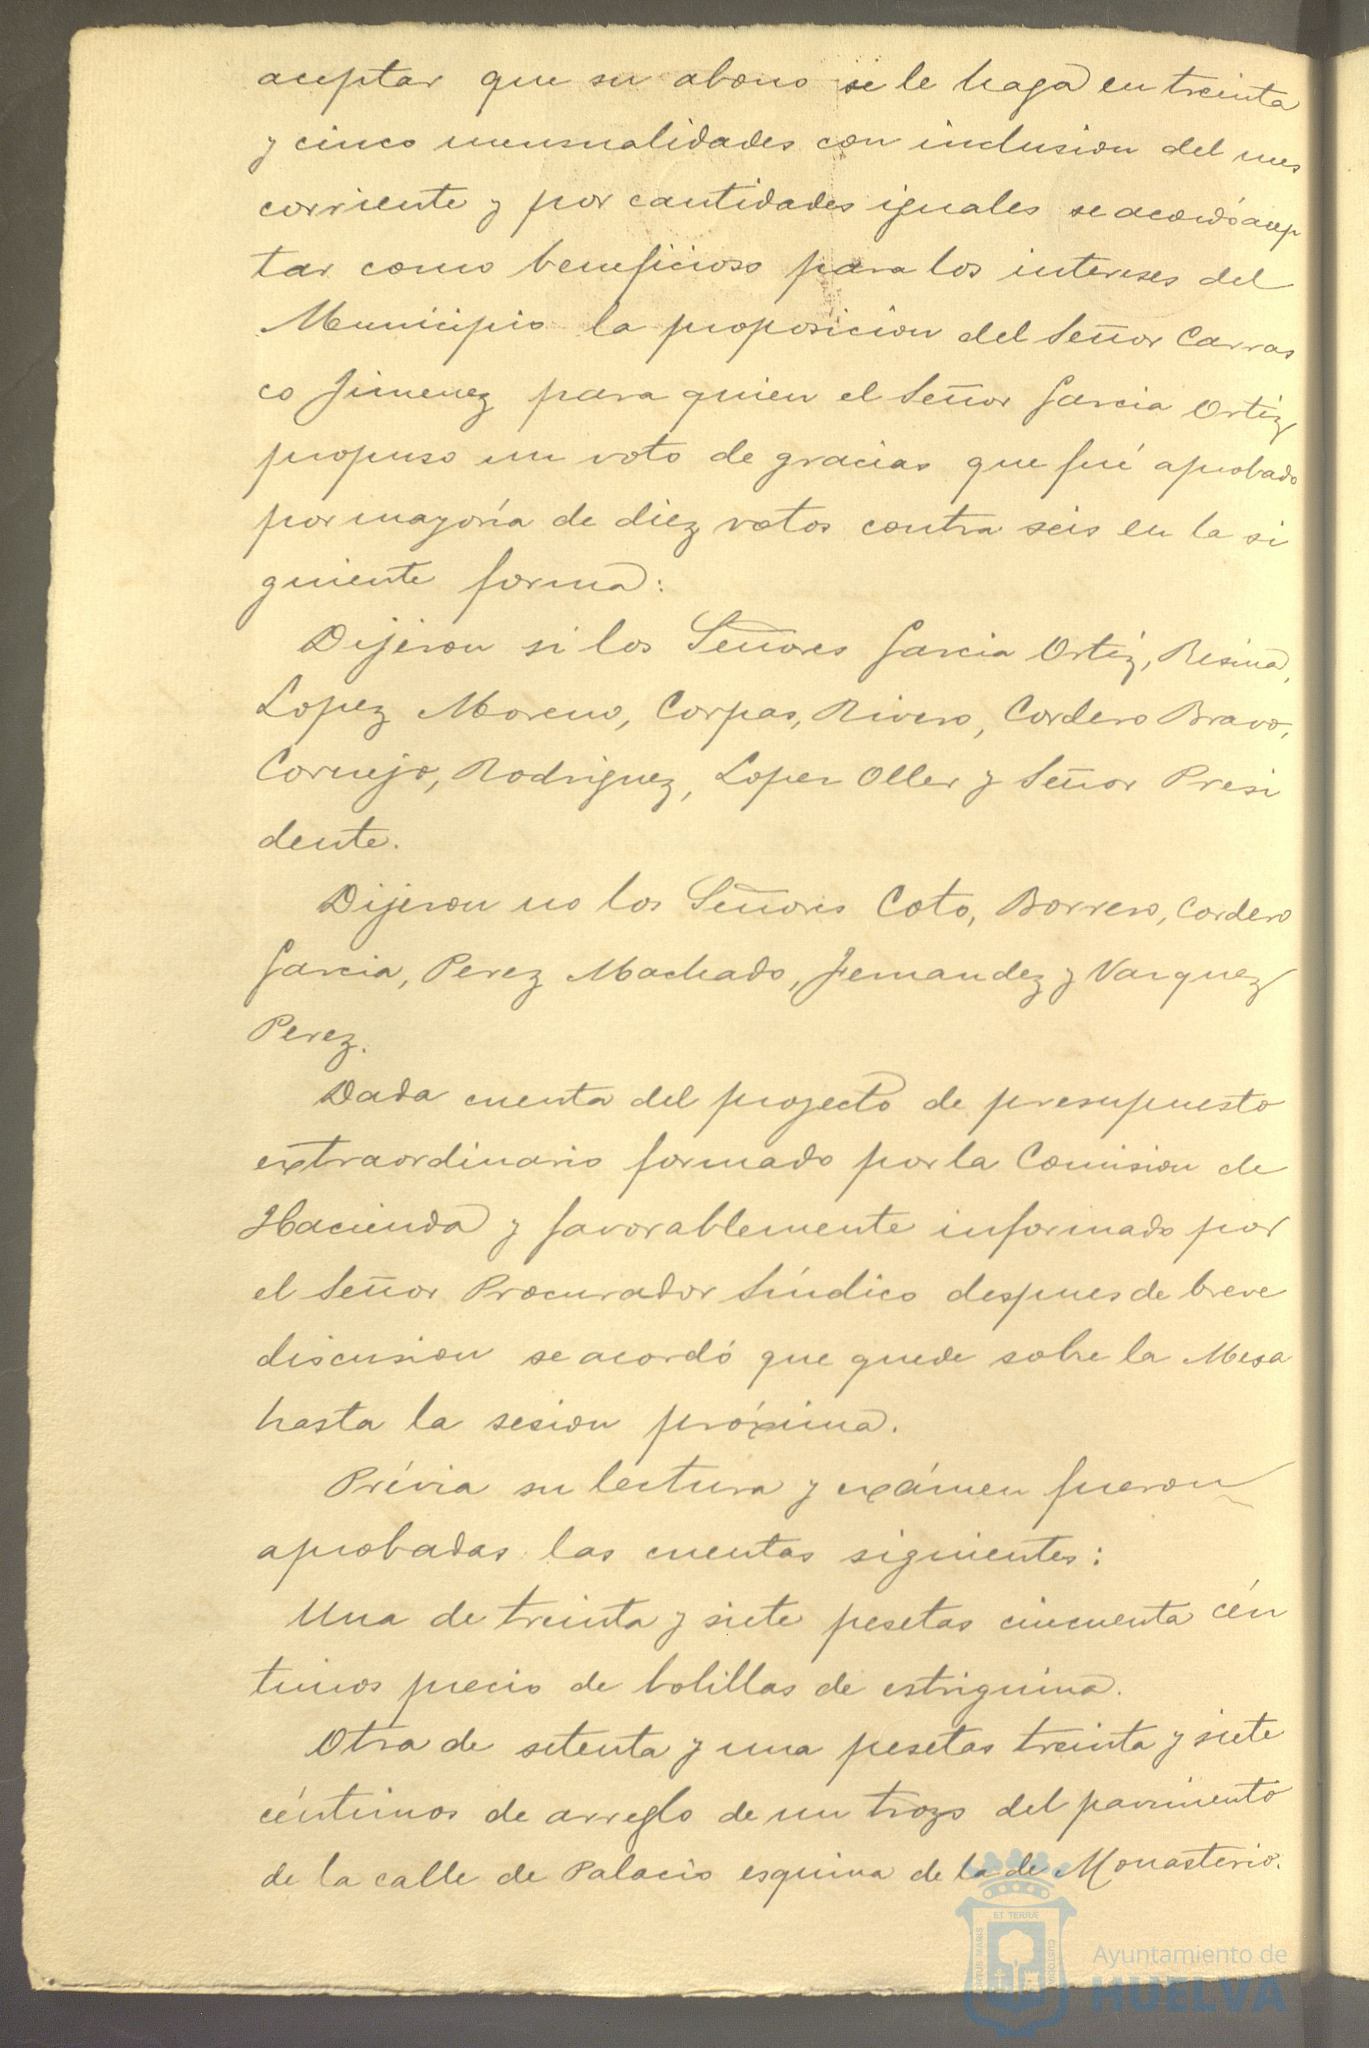 aceptar que su abono se le haga en treinta
y cinco mensualidades con inclusion del mes
corriente y por cantidades iguales se acordó acep
tar como beneficioso para los intereses del
Municipio la proposicion del Señor Carras
co Jimenez para quien el Señor Garcia Ortiz
propuso un voto de gracias que fué aprobado
por mayoría de diez votos contra seis en la si
guiente forma:
Dijeron si los Señores Garcia Ortiz, Resina,
Lopez Moreno, Corpas, Rivero, Cordero Bravo,
Cornejo, Rodriguez, Lopez Oller y Señor Presi
dente.
Dijeron no los Señores Coto, Borrero, Cordero
Garcia, Perez Machado, Fernandez y Vazquez
Perez.
Dada cuenta del proyecto de presupuesto
extraordinario formado por la Comision de
Hacienda y favorablemente informado por
el Señor Procurador Síndico despues de breve
discusion se acordó que quede sobre la Mesa
hasta la sesion próxima.
Prévia su lectura y exámen fueron
aprobadas las cuentas siguientes:
Una de treinta y siete pesetas cincuenta cén
timos precio de bolillas de estriquina.
Otra de setenta y una pesetas treinta y siete
céntimos de arreglo de un trozo del pavimento
de la calle de Palacio esquina de la de Monasterio.
Ayuntamiento de
HUELVA